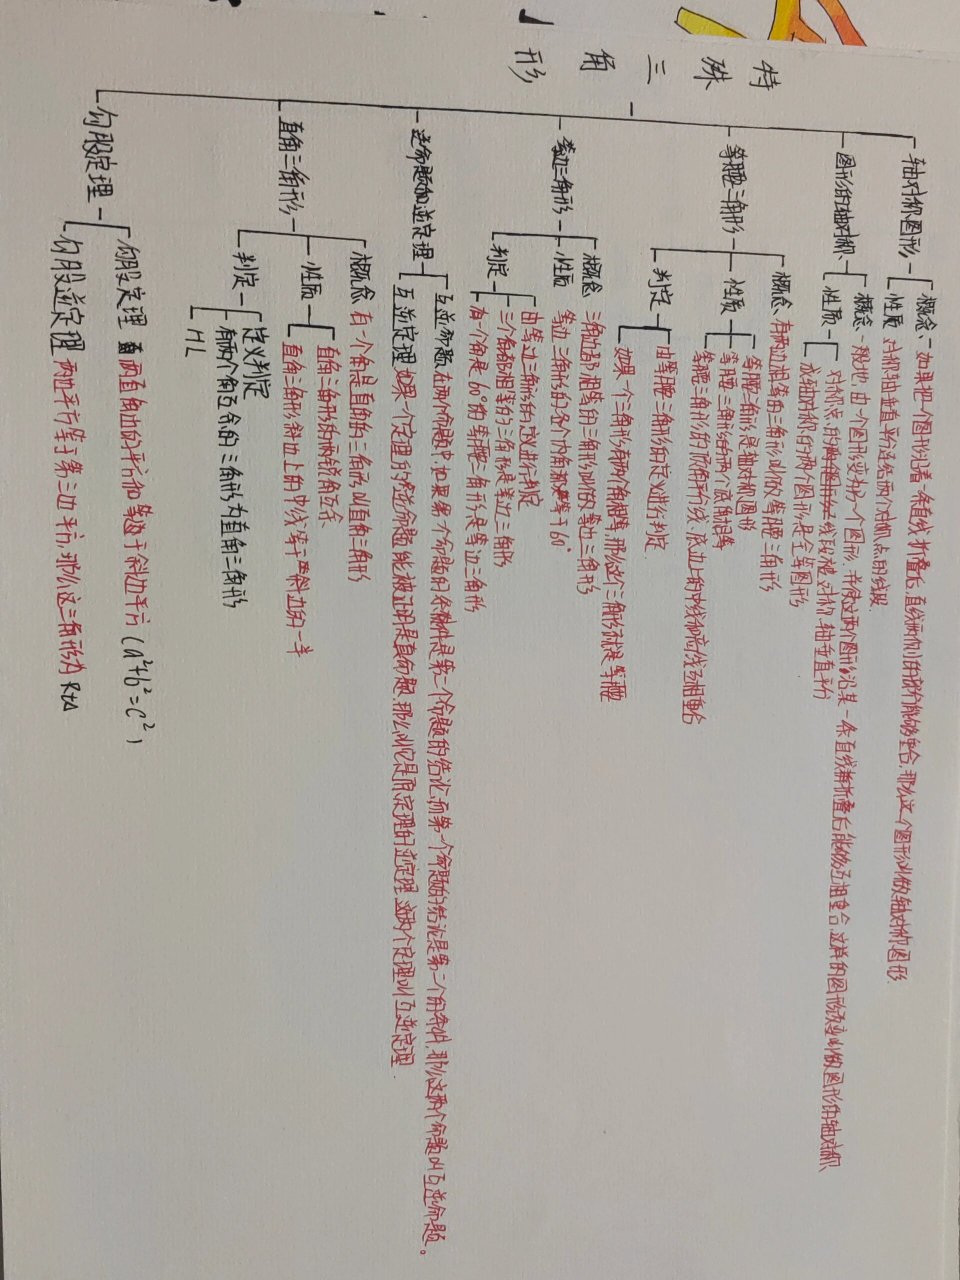 特殊三角形
轴对称图形
概念、如果把一个图形沿着一条直线折叠后,直线两侧的部分能够重合,那么这个图形叫做轴对称图形.
性质 对称轴垂直平分连结两个对称点的线段
图形的轴对称
概念 一般地,由一个图形变为另一个图形,并使这两个图形沿某一条直线折叠后能够互相重合,这样的图形改变叫做图形的轴对称、
性质
对称点的线段被对称轴垂直平分
成轴对称的两个图形是全等图形
等腰三角形
概念、有两边相等的三角形叫做等腰三角形
性质
等腰三角形是轴对称图形
等腰三角形的两个底角相等
等腰三角形的顶角平分线、底边上的中线和高线互相重合
判定
由等腰三角形的定义进行判定
如果一个三角形有两个角相等,那么这个三角形就是等腰
等边三角形
概念、三条边都相等的三角形叫做等边三角形
性质 等边三角形的各个内角都等于60°
判定
由等边三角形的定义进行判定
三个角都相等的三角形是等边三角形
有一个角是60°的等腰三角形是等边三角形
逆命题和逆定理
互逆命题 在两个命题中,如果第一个命题的条件是第二个命题的结论,而第一个命题的结论是第二个的条件,那么这两个命题叫互逆命题。
互逆定理 如果一个定理的逆命题能被证明是真命题,那么叫它是原定理的逆定理,这两个定理叫互逆定理.
直角三角形
概念 有一个角是直角的三角形叫直角三角形
性质
直角三角形的两锐角互余
直角三角形斜边上的中线等于斜边的一半
判定
定义判定
有两个角互余的三角形为直角三角形
HL
勾股定理
勾股定理 两直角边的平方和等于斜边平方 (a²+b²=c²)
勾股逆定理 两边平方等于第三边平方,那么这三角形为Rt△